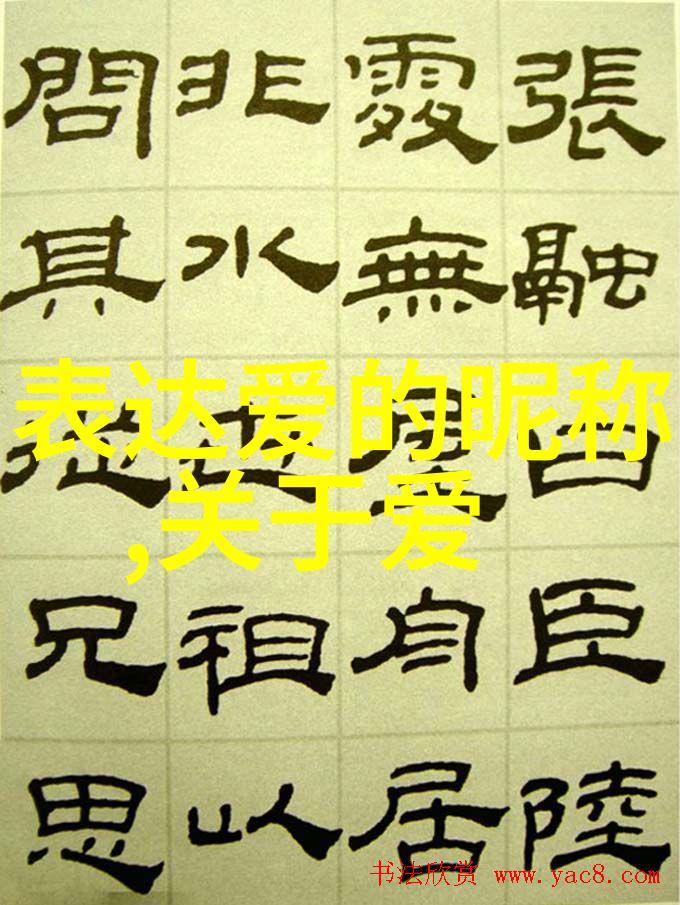 張融曰臣陸
處無屋舟居
非水也祖以
問其從兄思
表达爱的昵称
,关于爱
书法欣赏 www.yac8.com